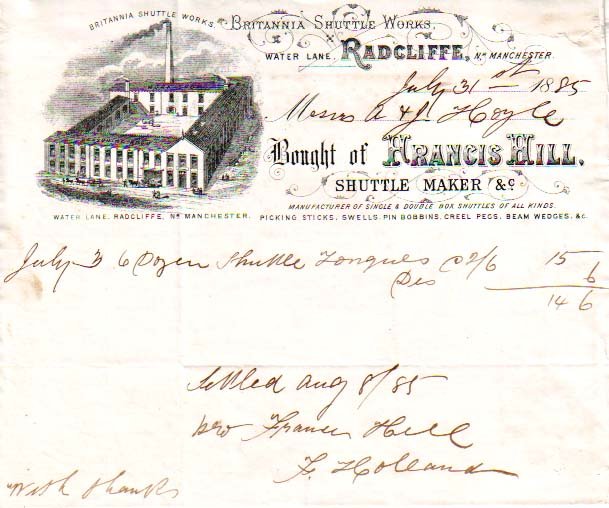 BRITANNIA SHUTTLE WORKS.
BRITANNIA SHUTTLE WORKS.
WATER LANE. RADCLIFFE, Nr MANCHESTER.
July 31st 1885
Messrs A & J Hoyle
Bought of FRANCIS HILL.
SHUTTLE MAKER &c.
MANUFACTURER OF SINGLE & DOUBLE BOX SHUTTLES OF ALL KINDS.
WATER LANE. RADCLIFFE, Nr MANCHESTER.
PICKING STICKS, SWELLS, PIN BOBBINS, CREEL PEGS, BEAM WEDGES, &c.
July 3 6 Dozen Shuttle Tongues @ 2/6 15
Dis 6
14 6
Settled Aug 8/85
pro Francis Hill
F. Holland
With thanks